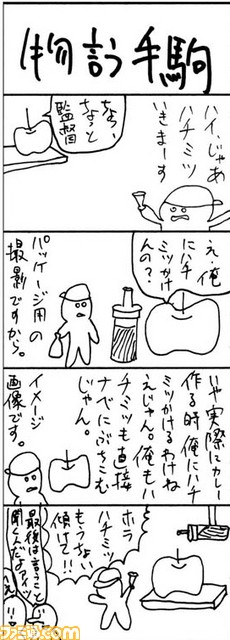 物言う手駒
ハイ、じゃあ
ハチミツ
いきまーす
なぁ、
ちょっと
監督
え、俺
にハチ
ミツかけ
んの?
パッケージ用の
撮影ですから。
いや実際にカレー
作る時俺にハチ
ミツかけるわけね
えじゃん。俺もハ
チミツも直接
ナベにぶちこむ
じゃん。
イメージ
画像です。
ホラ
ハチミツ
もうちょい
傾けて!!
最後は言うこと
聞くんだよアイツ
ファミ通.com